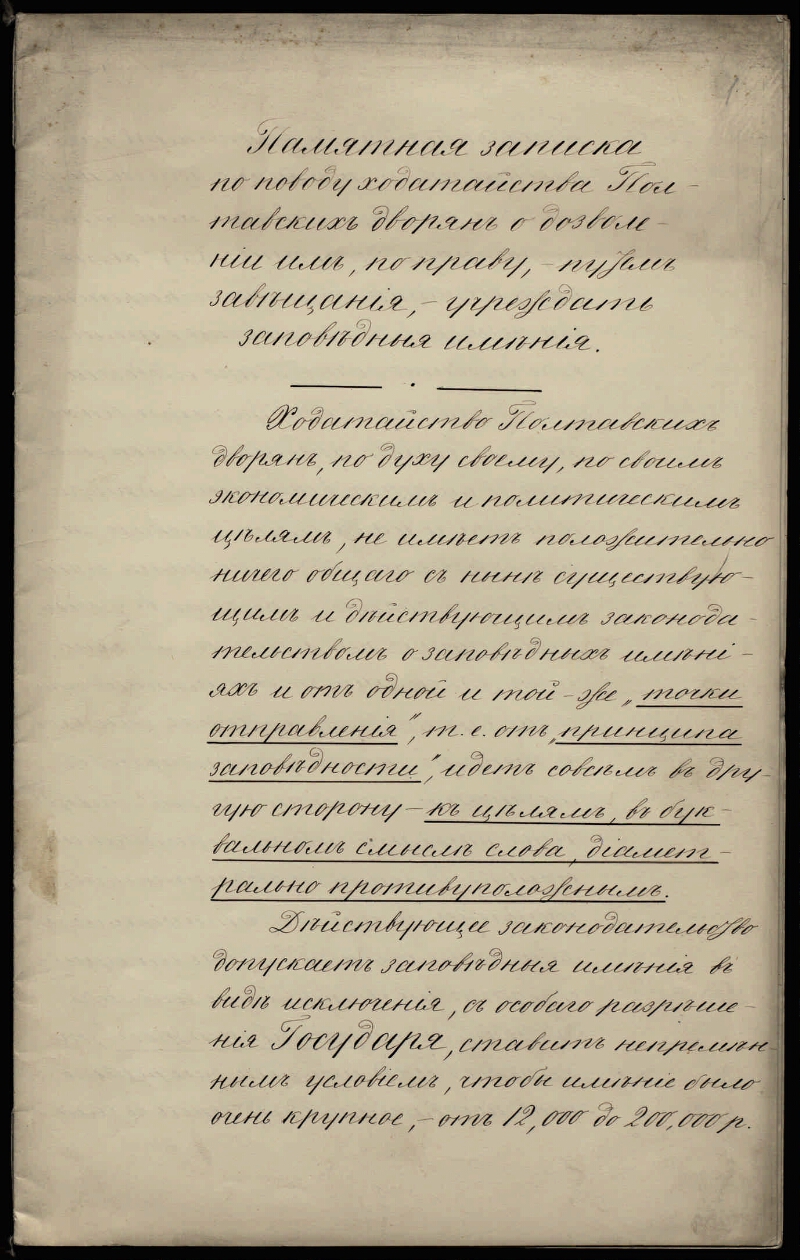 Памятная записка
по поводу ходатайства Пол-
тавскихъ дворянъ о дозволе-
ніи имъ, по праву, - путемъ
завѣщанія, - учреждать
заповѣдныя имѣнія.
Ходатайство Полтавскихъ
дворянъ, по духу своему, по своимъ
экономическимъ и политическимъ
цѣлямъ, не имѣетъ положительно
ничего общаго съ нынѣ существую-
щимъ и дѣйствующимъ законода-
тельствомъ о заповѣдныхъ имѣні-
яхъ и отъ одной и той-же „точки
отправленія", т. е. отъ „принципа
заповѣдности", идетъ совсѣмъ въ дру-
гую сторону - къ цѣлямъ, въ бук-
вальномъ смыслѣ слова, діамет-
рально противуположнымъ.
Дѣйствующее законодательство
допускаетъ заповѣдныя имѣнія въ
видѣ исключенія, съ особаго разрѣше-
нія Государя, ставитъ непремѣн-
нымъ условіемъ, чтобы имѣніе было
очень крупное, - отъ 12,000 до 200,000 р.